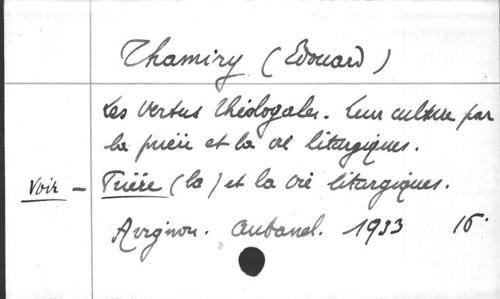 Thamiry (Edouard)
Les Vertus théologales. Leur culture par
la prière et la vie liturgiques.
Voir - Prière (la) et la vie liturgiques.
Avignon. Aubanel. 1933 16°